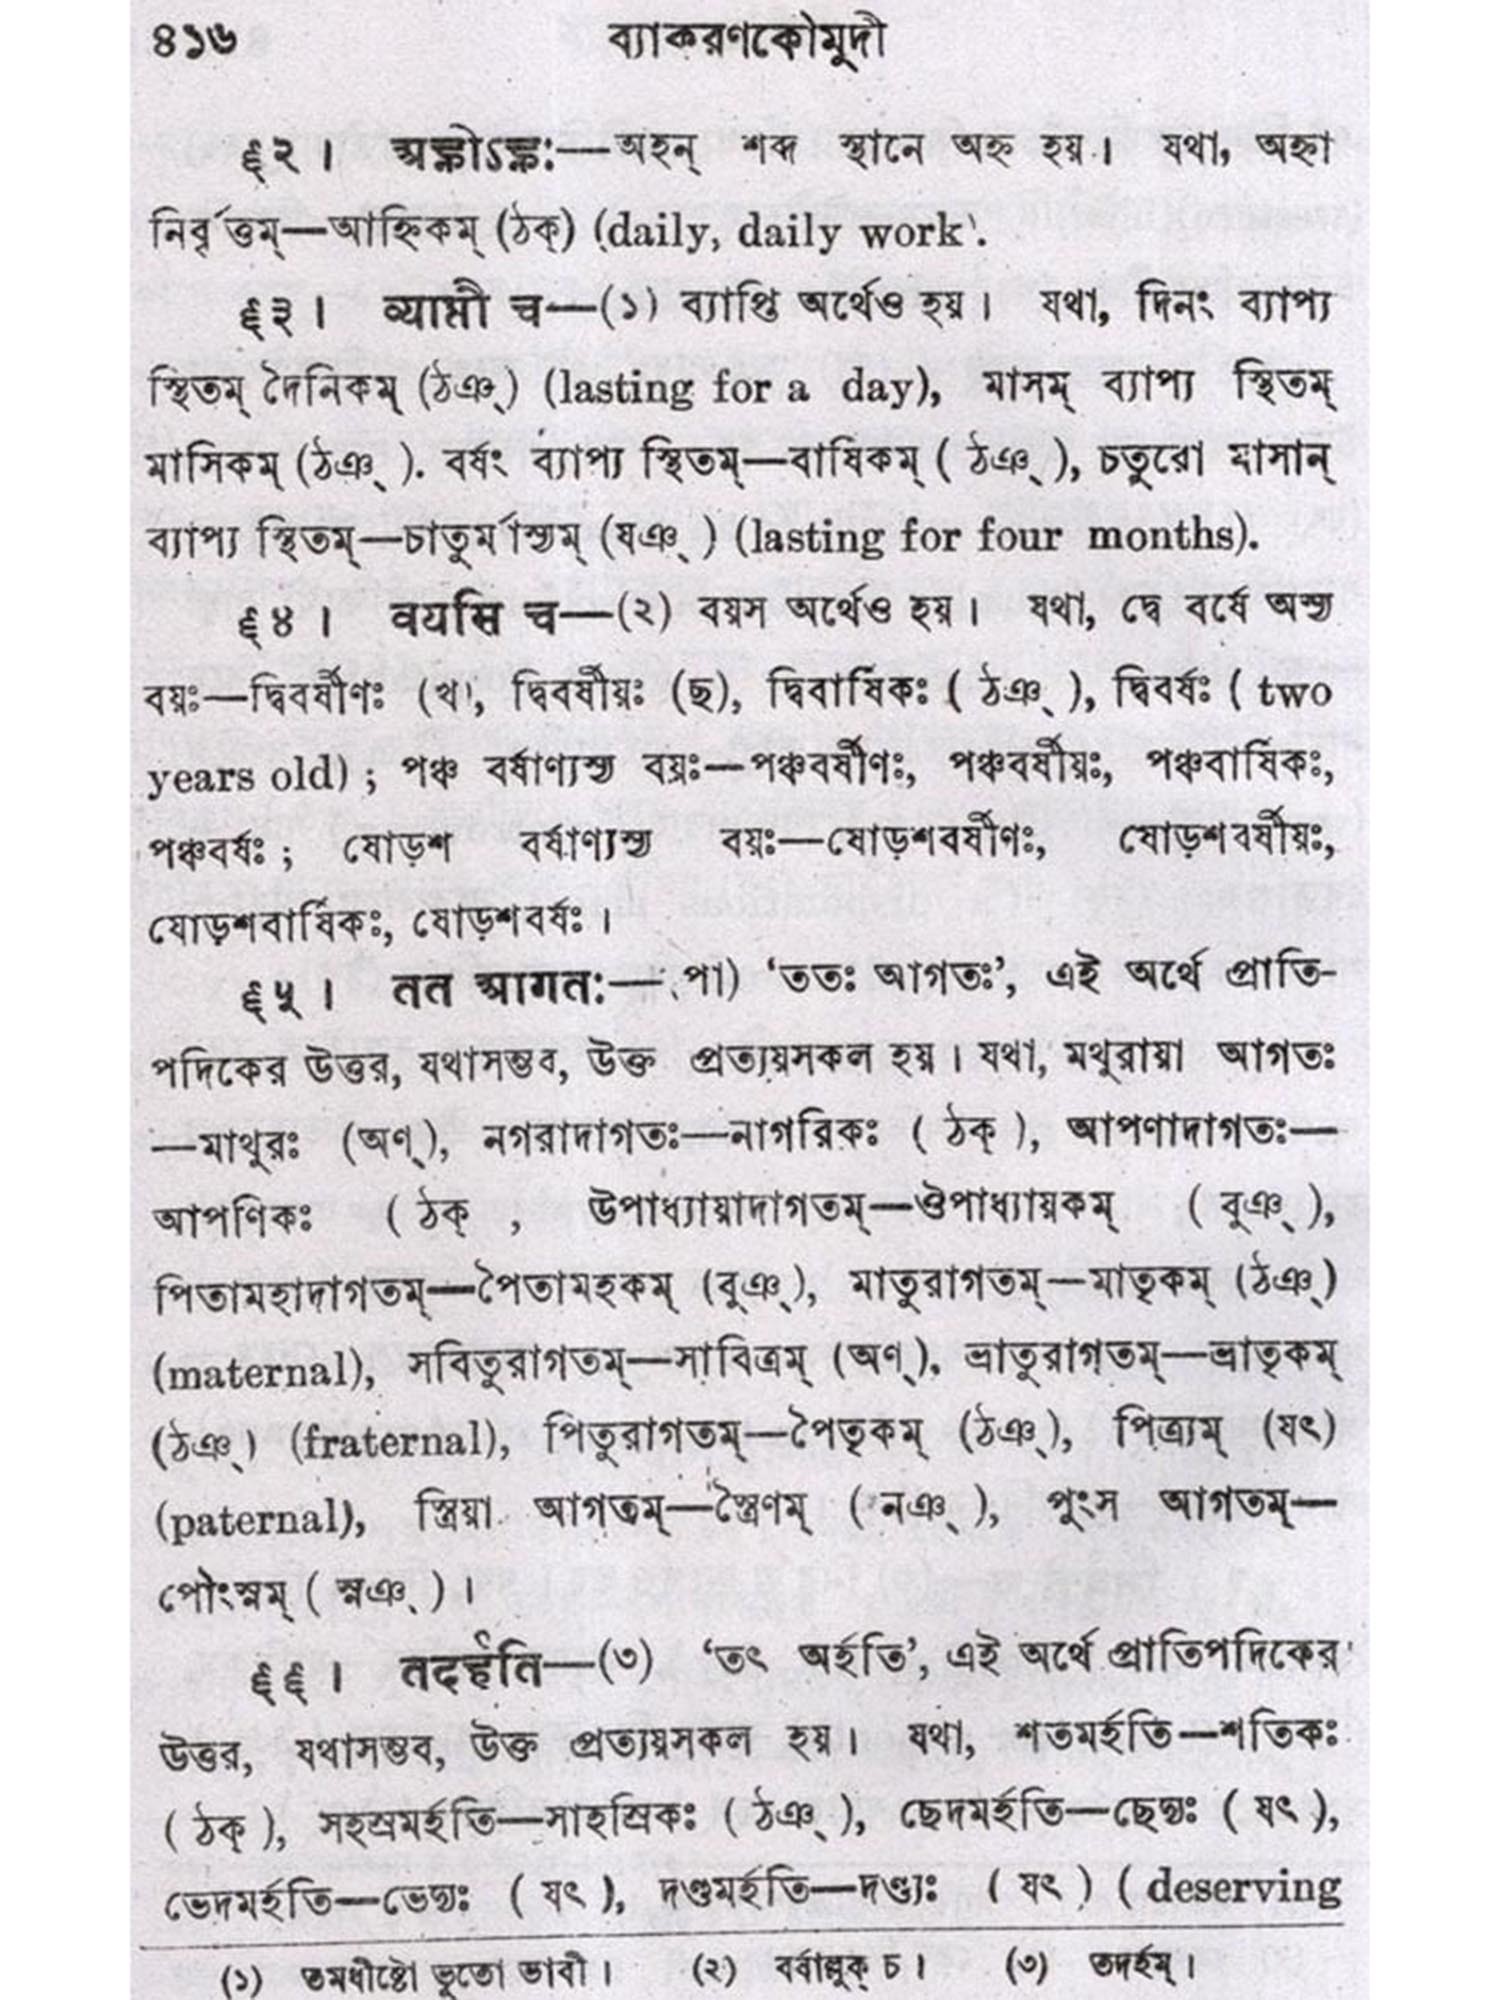 ৪১৬ ব্যাকরণকৌমুদী
६२। अह्नोऽह्नः—অহন্ শব্দ স্থানে অহ্ন হয়। যথা, অহ্না
নির্বৃত্তম্—আহ্নিকম্ (ঠক্) (daily, daily work).
६३। व्याप्तौ च—(১) ব্যাপ্তি অর্থেও হয়। যথা, দিনং ব্যাপ্য
স্থিতম্ দৈনিকম্ (ঠঞ্) (lasting for a day), মাসম্ ব্যাপ্য স্থিতম্
মাসিকম্ (ঠঞ্). বর্ষং ব্যাপ্য স্থিতম্—বার্ষিকম্ ( ঠঞ্ ), চতুরো মাসান্
ব্যাপ্য স্থিতম্—চাতুর্মাস্যম্ (ষঞ্ ) (lasting for four months).
६४। वयसि च—(২) বয়স অর্থেও হয়। যথা, দ্বে বর্ষে অস্য
বয়ঃ—দ্বিবর্ষীণঃ (খ), দ্বিবর্ষীয়ঃ (ছ), দ্বিবার্ষিকঃ ( ঠঞ্ ), দ্বিবর্ষঃ ( two
years old) ; পঞ্চ বর্ষাণ্যস্য বয়ঃ—পঞ্চবর্ষীণঃ, পঞ্চবর্ষীয়ঃ, পঞ্চবার্ষিকঃ,
পঞ্চবর্ষঃ ; ষোড়শ বর্ষাণ্যস্য বয়ঃ—ষোড়শবর্ষীণঃ, ষোড়শবর্ষীয়ঃ,
ষোড়শবার্ষিকঃ, ষোড়শবর্ষঃ।
६५। तत आगतः—(পা) ‘ততঃ আগতঃ’, এই অর্থে প্রাতি-
পদিকের উত্তর, যথাসম্ভব, উক্ত প্রত্যয়সকল হয়। যথা, মথুরায়া আগতঃ
—মাথুরঃ (অণ্), নগরাদাগতঃ—নাগরিকঃ ( ঠক্ ), আপণাদাগতঃ—
আপণিকঃ ( ঠক্ , উপাধ্যায়াদাগতম্—ঔপাধ্যায়কম্ ( বুঞ্ ),
পিতামহাদাগতম্—পৈতামহকম্ (বুঞ্), মাতুরাগতম্—মাতৃকম্ (ঠঞ্)
(maternal), সবিতুরাগতম্—সাবিত্রম্ (অণ্), ভ্রাতুরাগতম্—ভ্রাতৃকম্
(ঠঞ্) (fraternal), পিতুরাগতম্—পৈতৃকম্ (ঠঞ্), পিত্র্যম্ (যৎ)
(paternal), স্ত্রিয়া আগতম্—স্ত্রৈণম্ ( নঞ্ ), পুংস আগতম্—
পৌংস্নম্ ( স্নঞ্ )।
६६। तदर्हति—(৩) ‘তৎ অর্হতি’, এই অর্থে প্রাতিপদিকের
উত্তর, যথাসম্ভব, উক্ত প্রত্যয়সকল হয়। যথা, শতমর্হতি—শতিকঃ
( ঠক্ ), সহস্রমর্হতি—সাহস্রিকঃ ( ঠঞ্ ), ছেদমর্হতি—ছেদ্যঃ ( যৎ ),
ভেদমর্হতি—ভেদ্যঃ ( যৎ ), দণ্ডমর্হতি—দণ্ড্যঃ ( যৎ ) ( deserving
(১) তমধীষ্টো ভূতো ভাবী। (২) বর্ষাল্লুক্ চ। (৩) তদর্হম্।